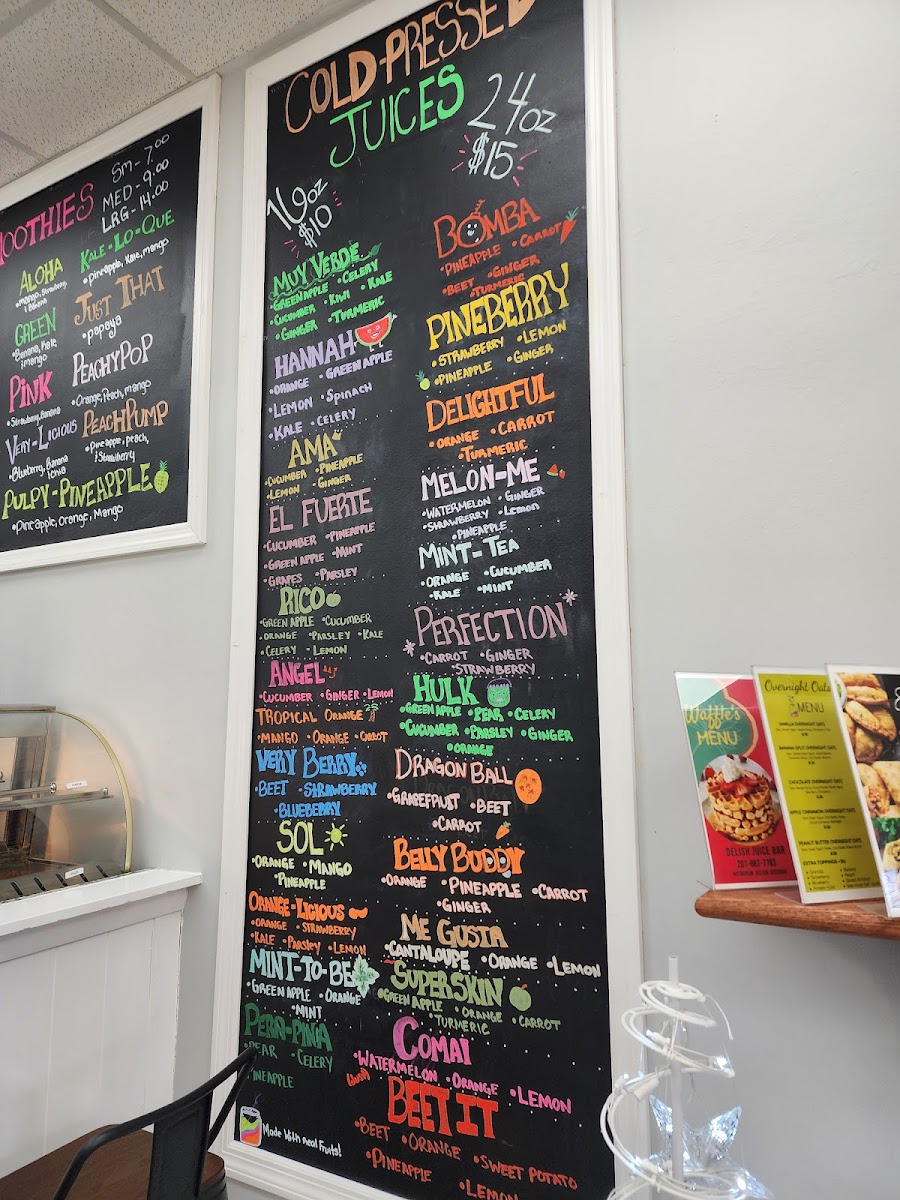 SMOOTHIES
SM - 7.00
MED - 9.00
LRG - 14.00
ALOHA
•mango, Strawberry,
& Banana
KALE•LO•QUE
•pineapple, Kale, mango
GREEN
•Banana, Kale,
& mango
JUST THAT
•papaya
PINK
•Strawberry, Banana
PEACHYPOP
•Orange, Peach, mango
VERY-LICIOUS
•Blueberry, Banana
PEACHPUMP
•Pineapple, peach,
& Strawberry
PULPY-PINEAPPLE
•Pineapple, Orange, Mango
COLD-PRESSED
JUICES
16oz
$10
24oz
$15
MUY VERDE
•GREENAPPLE •CELERY
•CUCUMBER •KIWI •KALE
•GINGER •TURMERIC
HANNAH
•ORANGE •GREEN APPLE
•LEMON •SPINACH
•KALE •CELERY
AMA
•CUCUMBER •PINEAPPLE
•LEMON •GINGER
EL FUERTE
•CUCUMBER •PINEAPPLE
•GREEN APPLE •MINT
•GRAPES •PARSLEY
RICO
•GREEN APPLE •CUCUMBER
•ORANGE •PARSLEY •KALE
•CELERY •LEMON
ANGEL
•CUCUMBER •GINGER •LEMON
TROPICAL ORANGE
•MANGO •ORANGE •CARROT
VERY BERRY
•BEET •STRAWBERRY
•BLUEBERRY
SOL
•ORANGE •MANGO
•PINEAPPLE
ORANGE-LICIOUS
•ORANGE •STRAWBERRY
•KALE •PARSLEY •LEMON
MINT-TO-BE
•GREEN APPLE •ORANGE
•MINT
PERA-PINA
•PEAR •CELERY
PINEAPPLE
Made With real Fruits!
BOMBA
•PINEAPPLE •CARROT
•BEET •GINGER
•TURMERIC
PINEBERRY
•STRAWBERRY •LEMON
•PINEAPPLE •GINGER
DELIGHTFUL
•ORANGE •CARROT
•TURMERIC
MELON-ME
•WATERMELON •GINGER
•STRAWBERRY •LEMON
•PINEAPPLE
MINT-TEA
•ORANGE •CUCUMBER
•KALE •MINT
PERFECTION
•CARROT •GINGER
•STRAWBERRY
HULK
•GREEN APPLE •PEAR •CELERY
•CUCUMBER •PARSLEY •GINGER
•ORANGE
DRAGON BALL
•GRAPEFRUIT •BEET
•CARROT
BELLY BUDDY
•ORANGE •PINEAPPLE •CARROT
•GINGER
ME GUSTA
•CANTALOUPE •ORANGE •LEMON
SUPERSKIN
•GREEN APPLE •ORANGE •CARROT
•TURMERIC
COMAI
•WATERMELON •ORANGE •LEMON
BEET IT
•BEET •ORANGE •SWEET POTATO
•PINEAPPLE •LEMON
Waffle's
MENU
DELISH JUICE BAR
201-662-7783
Overnight Oats
MENU
VANILLA OVERNIGHT OATS
BANANA SPLIT OVERNIGHT OATS
CHOCOLATE OVERNIGHT OATS
APPLE CINNAMON OVERNIGHT OATS
PEANUT BUTTER OVERNIGHT OATS
EXTRA TOPPINGS